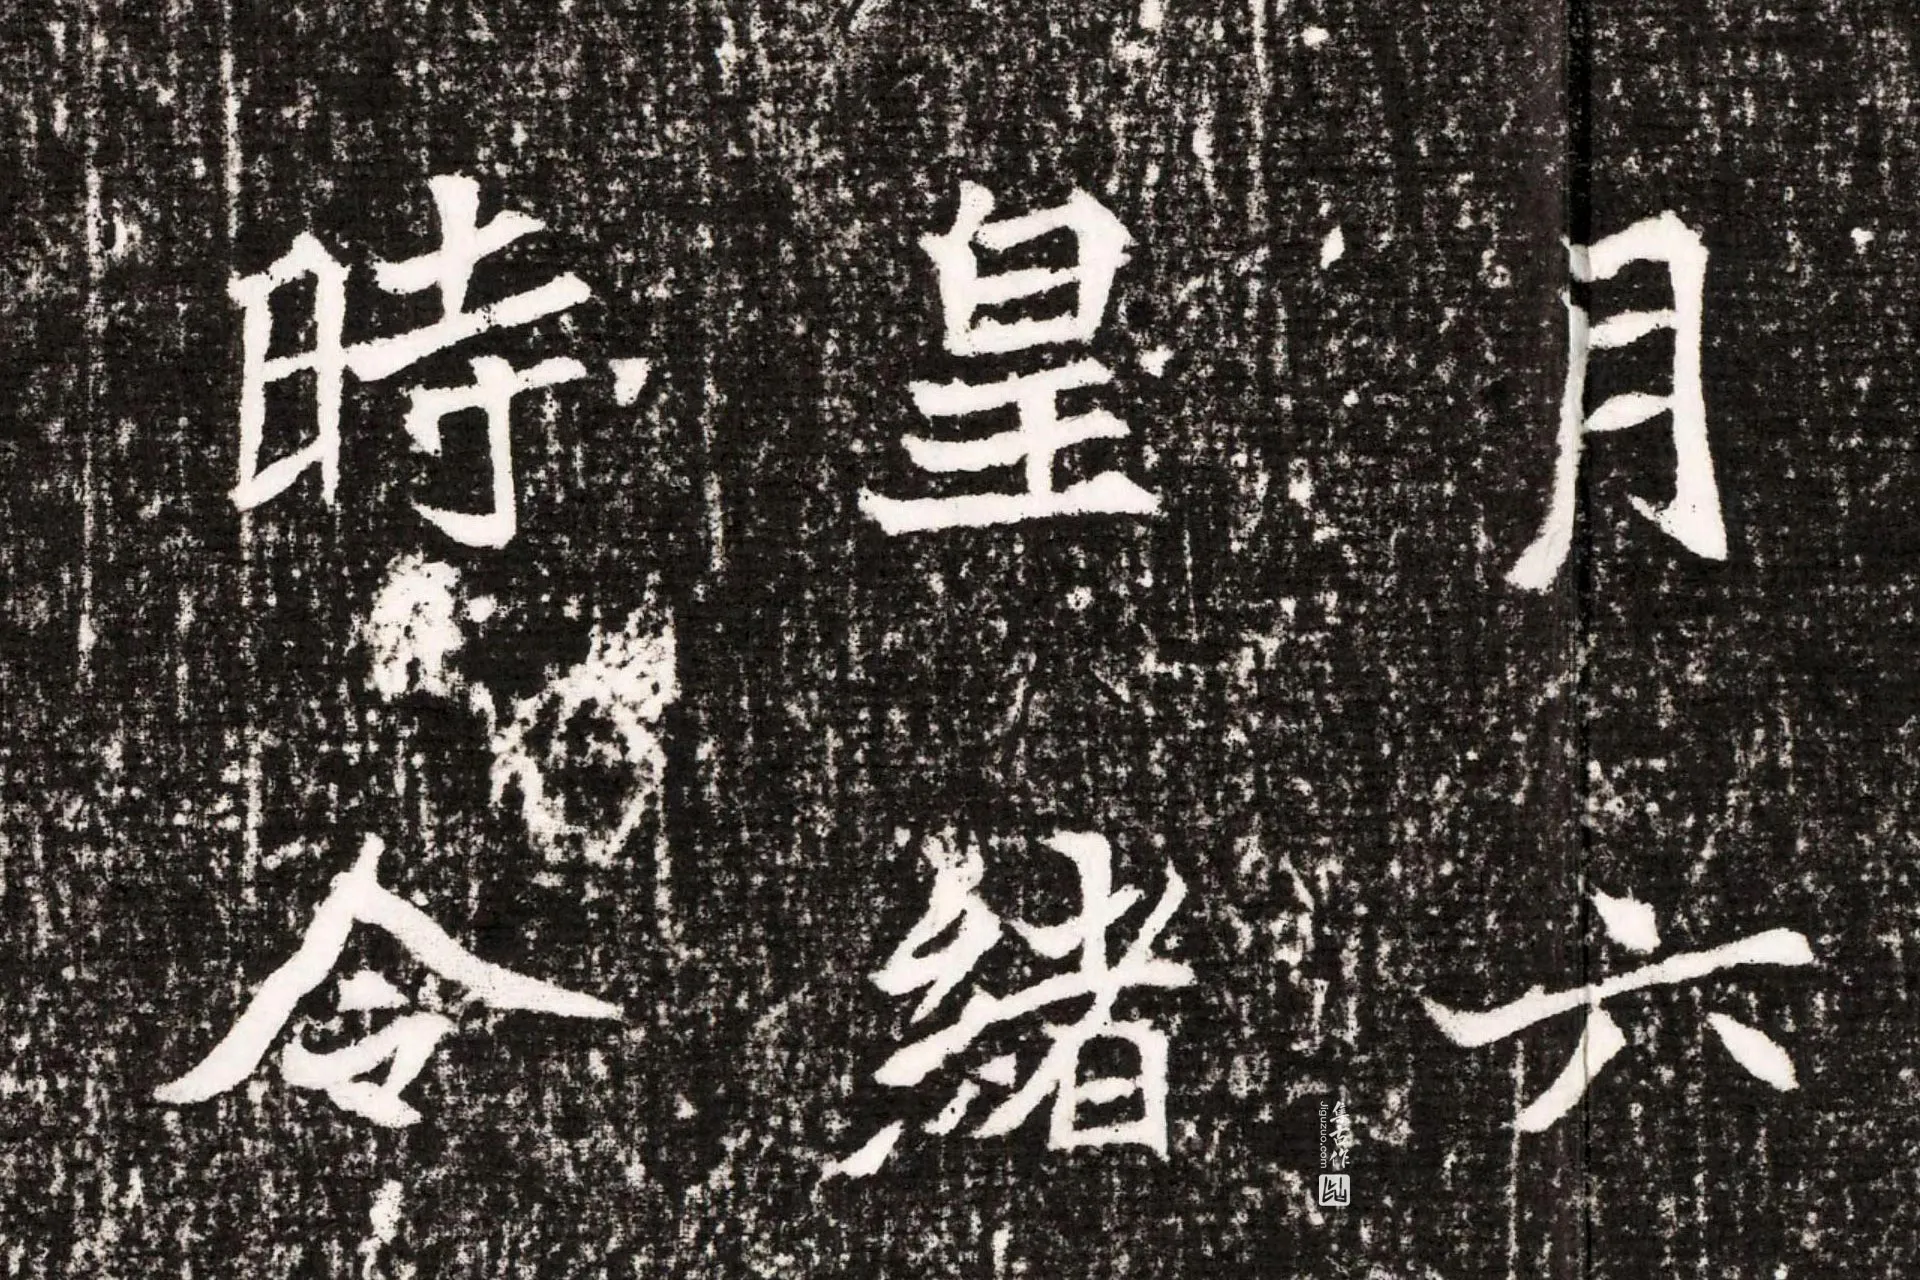 月六
皇緒
時令
集古作
jiguzuo.com